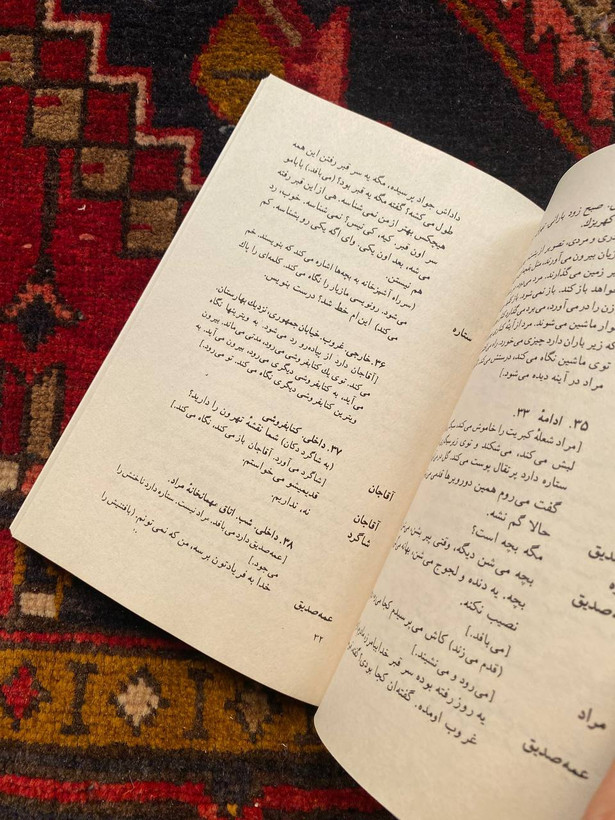 صبح زود بارانی
کهریزک.
ی و مردی، تصویر از پشت
زیان بیرون می‌آورند، مثل
بر زمین می‌گذارند. مرد می‌خواهد
خواهد باز کند. باز نمی‌شود.
زن را در می‌آورد، می‌برد
وار ماشین می‌شوند. مراد از آینهٔ
که زیر باران دارد چیزی می‌خورد،
توی ماشین نگاه می‌کند، درستش
مراد در آینه دیده می‌شود.]
۳۵. ادامهٔ ۳۳.
[مراد شعلهٔ کبریت را خاموش می‌کند،
لیش می‌کند، می‌شکند و توی
ستاره دارد پرتقال پوست می‌کند،
گفت می‌روم همین دوروبرها
حالا گم نشه.
مگه بچه است؟
بچه می‌شن دیگه، وقتی پیر
بچه. یه دنده و لجوج می‌شن،
نصیب نکنه.
[می‌بافد.]
مراد (قدم می‌زند) کاش می‌پرسیدم کجا
[می‌رود و می‌نشیند.]
عمه‌صدیق یه روز رفته بوده سر قبر خدابیامرز
غروب اومده. گفته‌ان کجا بودی؟
داداش جواد پرسیده، مگه یه سر قبر رفتن این همه
طول می‌کشه؟ گفته مگه یه قبر بود؟ (می‌بافد) بابامو
هیچکس بهتر از من نمی‌شناسه. هی از این قبر رفته
سر اون قبر. کیه، کی نیس؟ نمی‌شناسه. خوب، رد
می‌شه، بعد اون یکی. وای اگه یکی رو بشناسه. کم
هم نیستن.
ستاره (سر راه آشپزخانه به بچه‌ها اشاره می‌کند که بنویسند. خم
می‌شود، رونویسی مازیار را نگاه می‌کند. کلمه‌ای را پاک
می‌کند) این ام خط شد؟ درست بنویس.
۳۶. خارجی. غروب. خیابان جمهوری، نزدیك بهارستان.
[آقاجان دارد از پیاده‌رو رد می‌شود. به ویترینها نگاه
می‌کند، توی یك کتابفروشی می‌رود، مدتی می‌ماند. بیرون
می‌آید، به کتابفروشی دیگری می‌رود، بیرون می‌آید. به
ویترین کتابفروشی دیگری نگاه می‌کند. تو می‌رود.]
۳۷. داخلی. کتابفروشی
آقاجان (به شاگرد دکان) شما نقشهٔ تهرون را دارید؟
[شاگرد می‌آورد. آقاجان باز می‌کند، نگاه می‌کند.]
آقاجان قدیمیشو می‌خواستم.
شاگرد نه، نداریم.
۳۸. داخلی. شب. اتاق مهمانخانهٔ مراد.
[عمه‌صدیق دارد می‌بافد. مراد نیست. ستاره دارد ناخنش را
می‌جود.]
عمه‌صدیق خدا به فریادتون برسه، من که نمی‌تونم. (بافتنیش را
۳۲